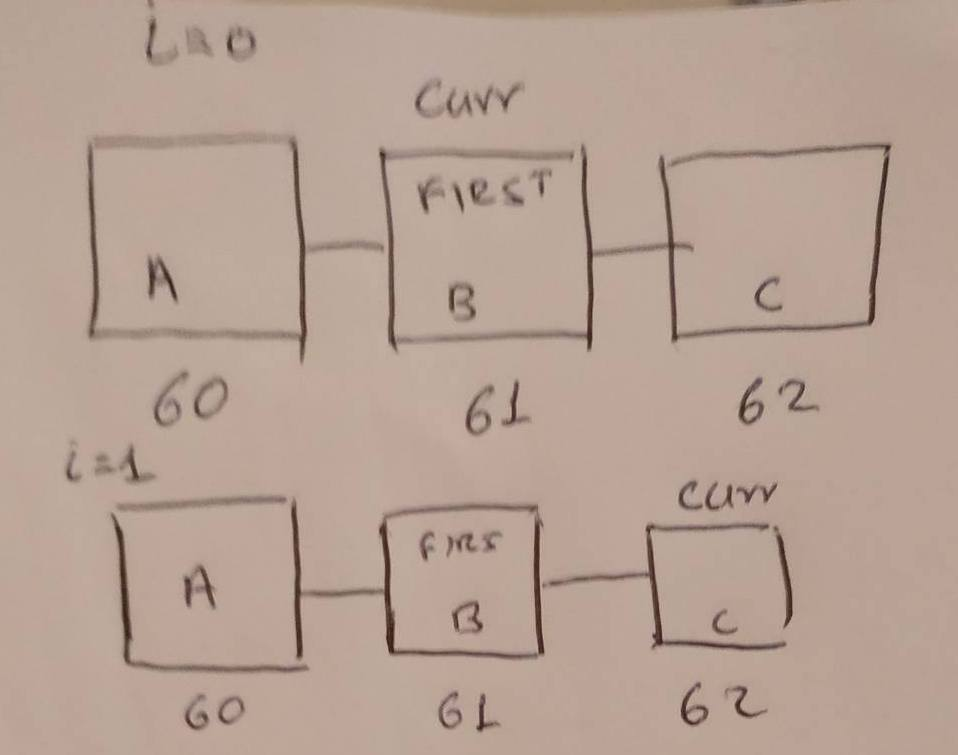 i=0
Curr
FIRST
A B C
60 61 62
i=1
Curr
FIRS
A B C
60 61 62